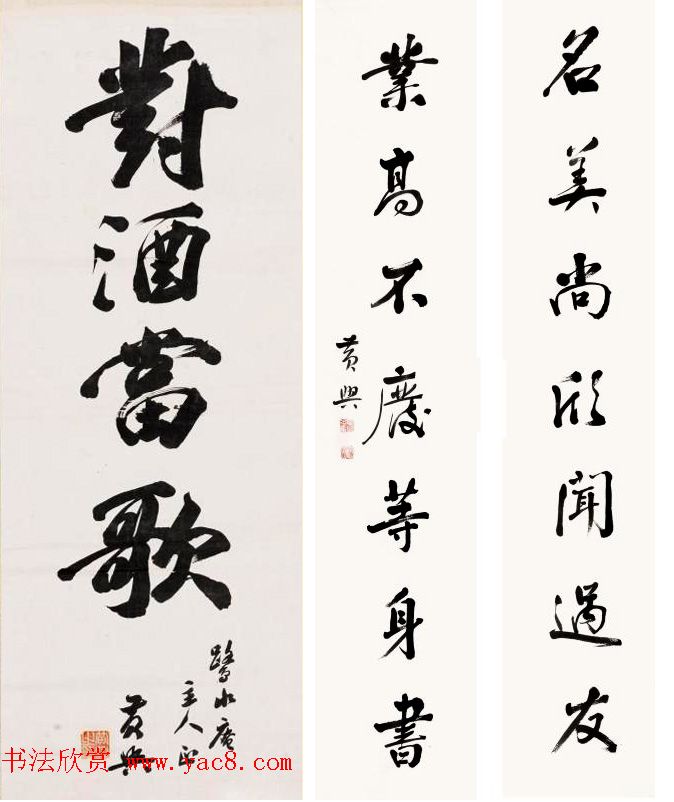 名美尚欣聞過友
業高不廢等身書
黃興
對酒當歌
鷺水庵
主人正
黃興
书法欣赏 www.yac8.com